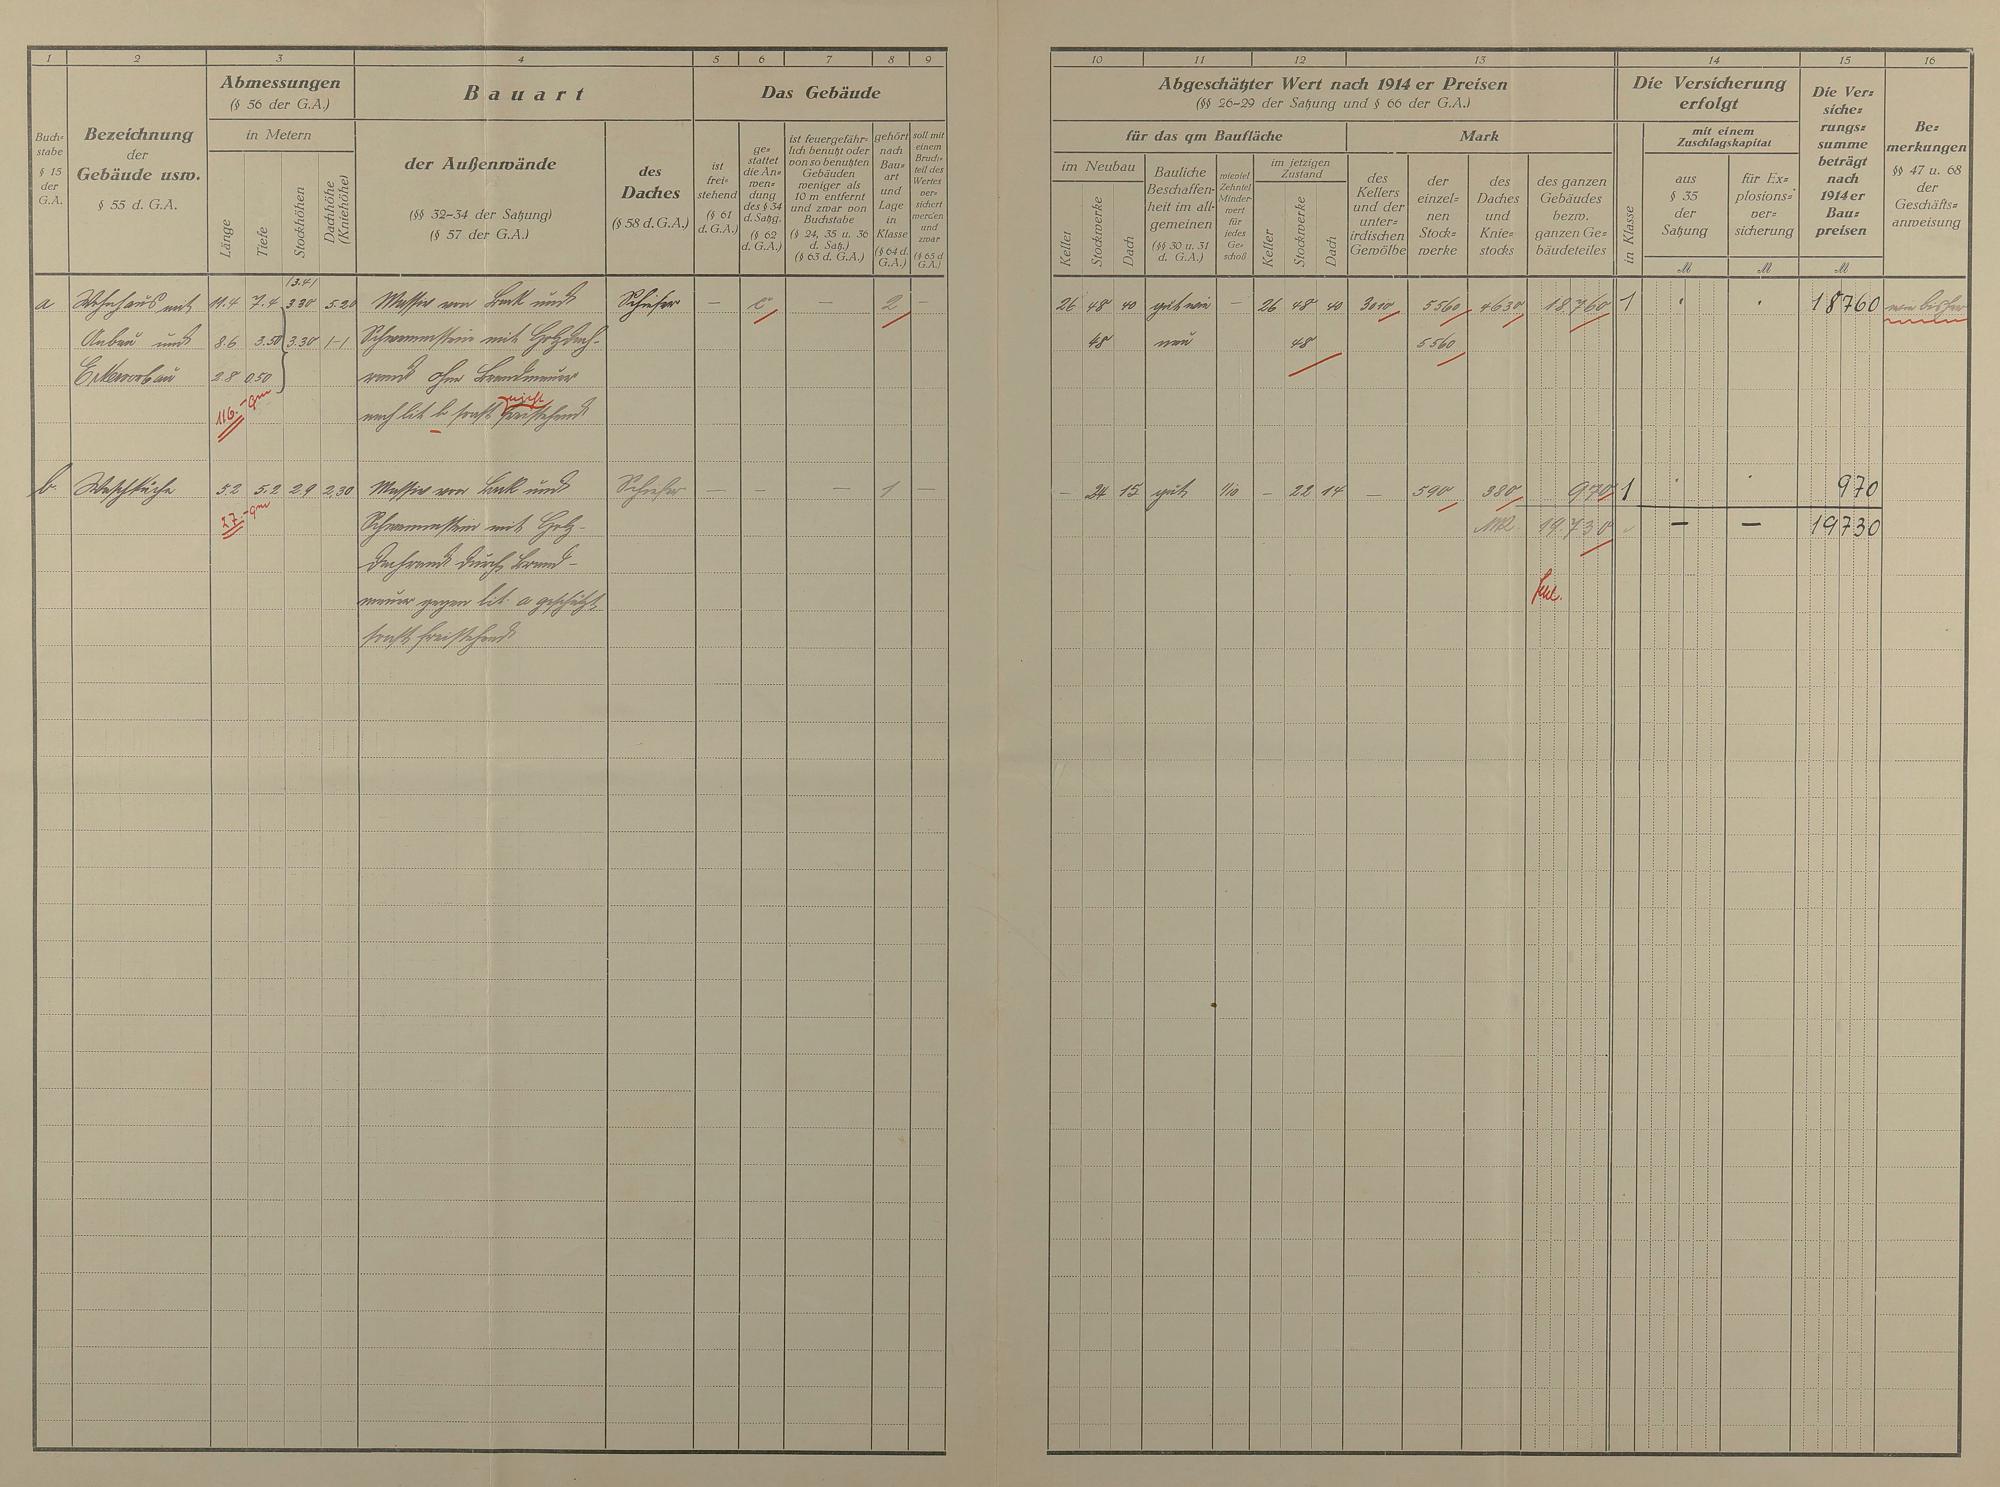 1 2 3 4 5 6 7 8 9
Buch=
stabe
§ 15
der
G.A.
Bezeichnung
der
Gebäude usw.
§ 55 d. G.A.
Abmessungen
(§ 56 der G.A.)
in Metern
Länge
Tiefe
Stockhöhen
Dachhöhe
(Kniehöhe)
Bauart
der Außenwände
(§§ 32–34 der Satzung)
(§ 57 der G.A.)
des
Daches
(§ 58 d. G.A.)
Das Gebäude
ist
frei=
stehend
(§ 61
d. G.A.)
ge=
stattet
die An=
wen=
dung
des § 34
d. Satzg.
(§ 62
d. G.A.)
ist feuergefähr=
lich benutzt oder
von so benutzten
Gebäuden
weniger als
10 m entfernt
und zwar von
Buchstabe
(§ 24, 35 u. 36
d. Satz.)
(§ 63 d. G.A.)
gehört
nach
Bau=
art
und
Lage
in
Klasse
(§ 64 d.
G.A.)
soll mit
einem
Bruch=
teil des
Wertes
ver=
sichert
werden
und
zwar
(§ 65 d.
G.A.)
(3.4)
a Wohnhaus mit 11.4 7.4 3.30 5.20 Massiv von Back und Schiefer — c — 2 —
Anbau und 8.6 3.50 3.30 Schwemmstein mit Holzdach-
Erkervorbau 2.8 0.50 rand ohne Brandmauer
nicht
116.- qm nach lit b freistehend
b. Waschküche 5.2 5.2 2.9 2.30 Massiv von Back und Schiefer — — — 1 —
27.- qm Schwemmstein mit Holz-
dachrand durch Brand-
mauer gegen lit. a geschützt
freistehend
10 11 12 13 14 15 16
Abgeschätzter Wert nach 1914er Preisen
(§§ 26–29 der Satzung und § 66 der G.A.)
für das qm Baufläche
im Neubau
Keller
Stockwerke
Dach
Bauliche
Beschaffen=
heit im all=
gemeinen
(§§ 30 u. 31
d. G.A.)
wieviel
Zehntel
Minder=
wert
für
jedes
Ge=
schoß
im jetzigen
Zustand
Keller
Stockwerke
Dach
Mark
des
Kellers
und der
unter=
irdischen
Gewölbe
der
einzel=
nen
Stock=
werke
des
Daches
und
Knie=
stocks
des ganzen
Gebäudes
bezw.
ganzen Ge=
bäudeteiles
Die Versicherung
erfolgt
in Klasse
mit einem
Zuschlagskapital
aus
§ 35
der
Satzung
für Ex=
plosions=
ver=
sicherung
Die Ver=
siche=
rungs=
summe
beträgt
nach
1914er
Bau=
preisen
M M M
Be=
merkungen
§§ 47 u. 68
der
Geschäfts=
anweisung
26 48 40 gut wie — 26 48 40 3010 5560 4630 18.760 1 18760 wie bisher
48 neu 48 5560
— 24 15 gut 1/10 — 22 14 — 590 380 970 1 970
19.730 — — 19730